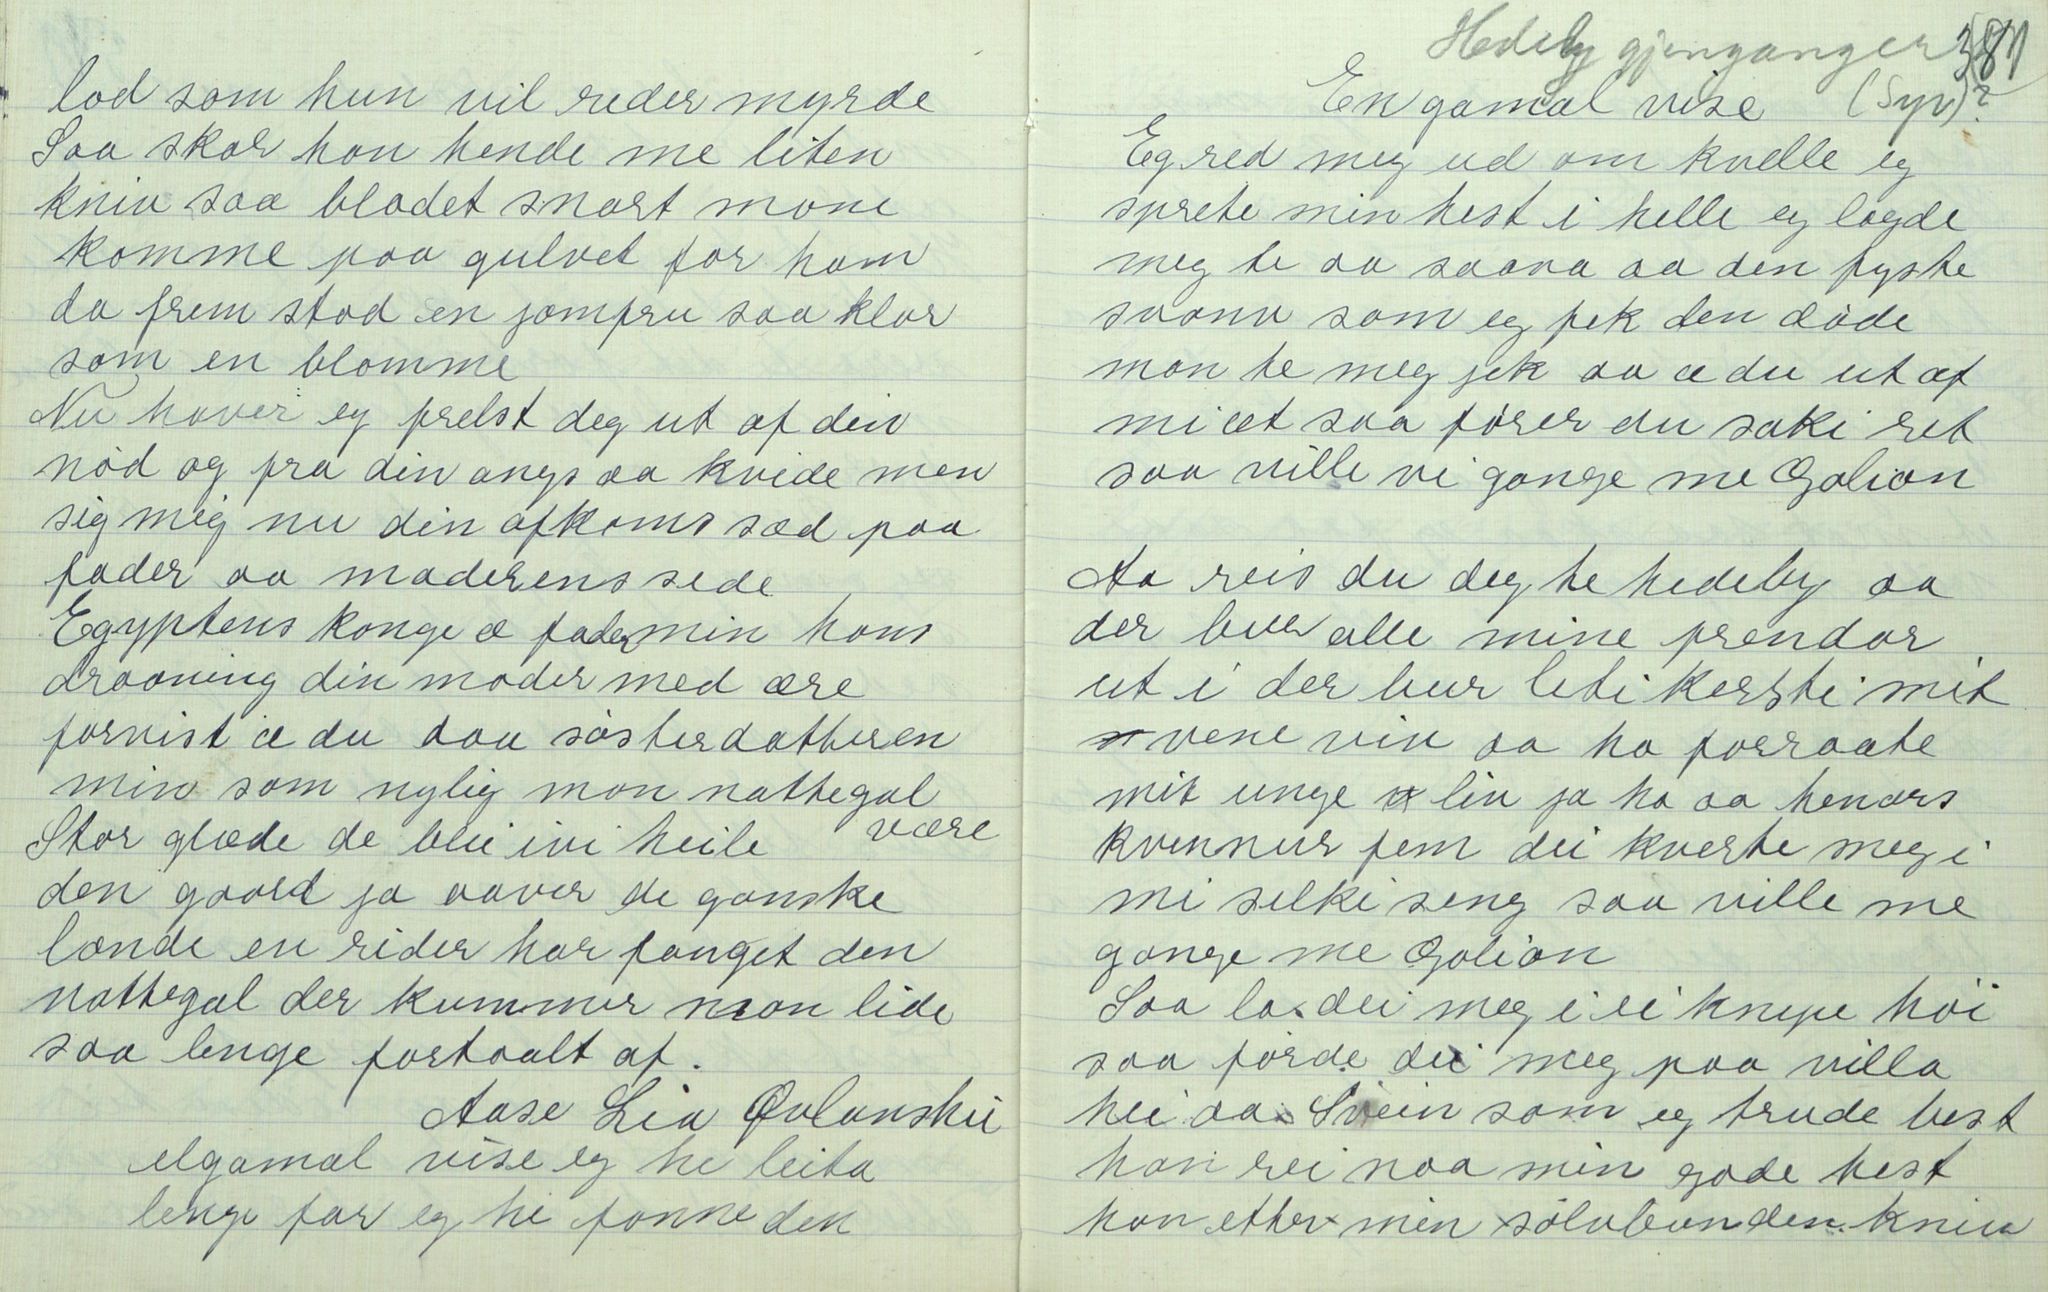 lod som hun vil reder myrde
Saa skar han hende me liten
kniv saa blodet snart mone
komme paa gulvet for ham
da frem stod en jomfru saa klar
som en blomme
Nu haver eg frelst deg ut af din
nød og fra din angs aa kvide men
sig mig nu din afkoms sæd paa
fader aa moderens sede
Egyptens konge æ fader min hans
draaning din moder med ære
forvist æ du daa søsterdatteren
min som nylig mon nattegal
være
Stor glæde de blei ivi heile
den gaard ja aaver de ganske
lande en rider har fanget den
nattegal der kummer mon lide
saa lenge fortaalt af.
Aase Lia Ovlanskii
elgamal vise eg he leita
lenge før eg he fonne den
Hedeby gjenganger 381
En gamal vise (Syv)?
Eg red meg ud om kvelle eg
sprete min hest i helle eg lagde
meg te aa saava aa den fyste
svavn som eg fek den døde
man te meg jek aa æ du ut af
mi æt saa fører du saki ret
saa ville vi gange me Galian
Aa reis du deg te hedeby aa
der buer alle mine frendar
ut i der bur liti kersti mit
vene viv aa ho forraate
mit unge liv ja ho aa henars
kvennur fem dei kverte meg i
mi silki seng saa ville me
gange me Galian
Saa la dei meg i ei knype høi
saa førde dei meg paa villa
hei aa Svein som eg trude best
han rei naa min gode hest
han etter min sølvbunden kniv